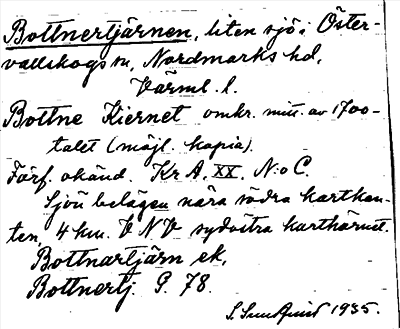 Bottnertjärnen, liten sjö i Öster-
vallskogs sn, Nordmarks hd,
Värml. l.
Bottne Kiernet omkr. mitt. av 1700-
talet (möjl. kopia).
Förf. okänd. Kr A. XX. N:o C.
Sjön belägen nära södra kartkan-
ten, 4 km. V N V sydöstra karthörnet.
Bottnartjärn ek.
Bottnertj. G. 78.
S. Sundquist 1935.